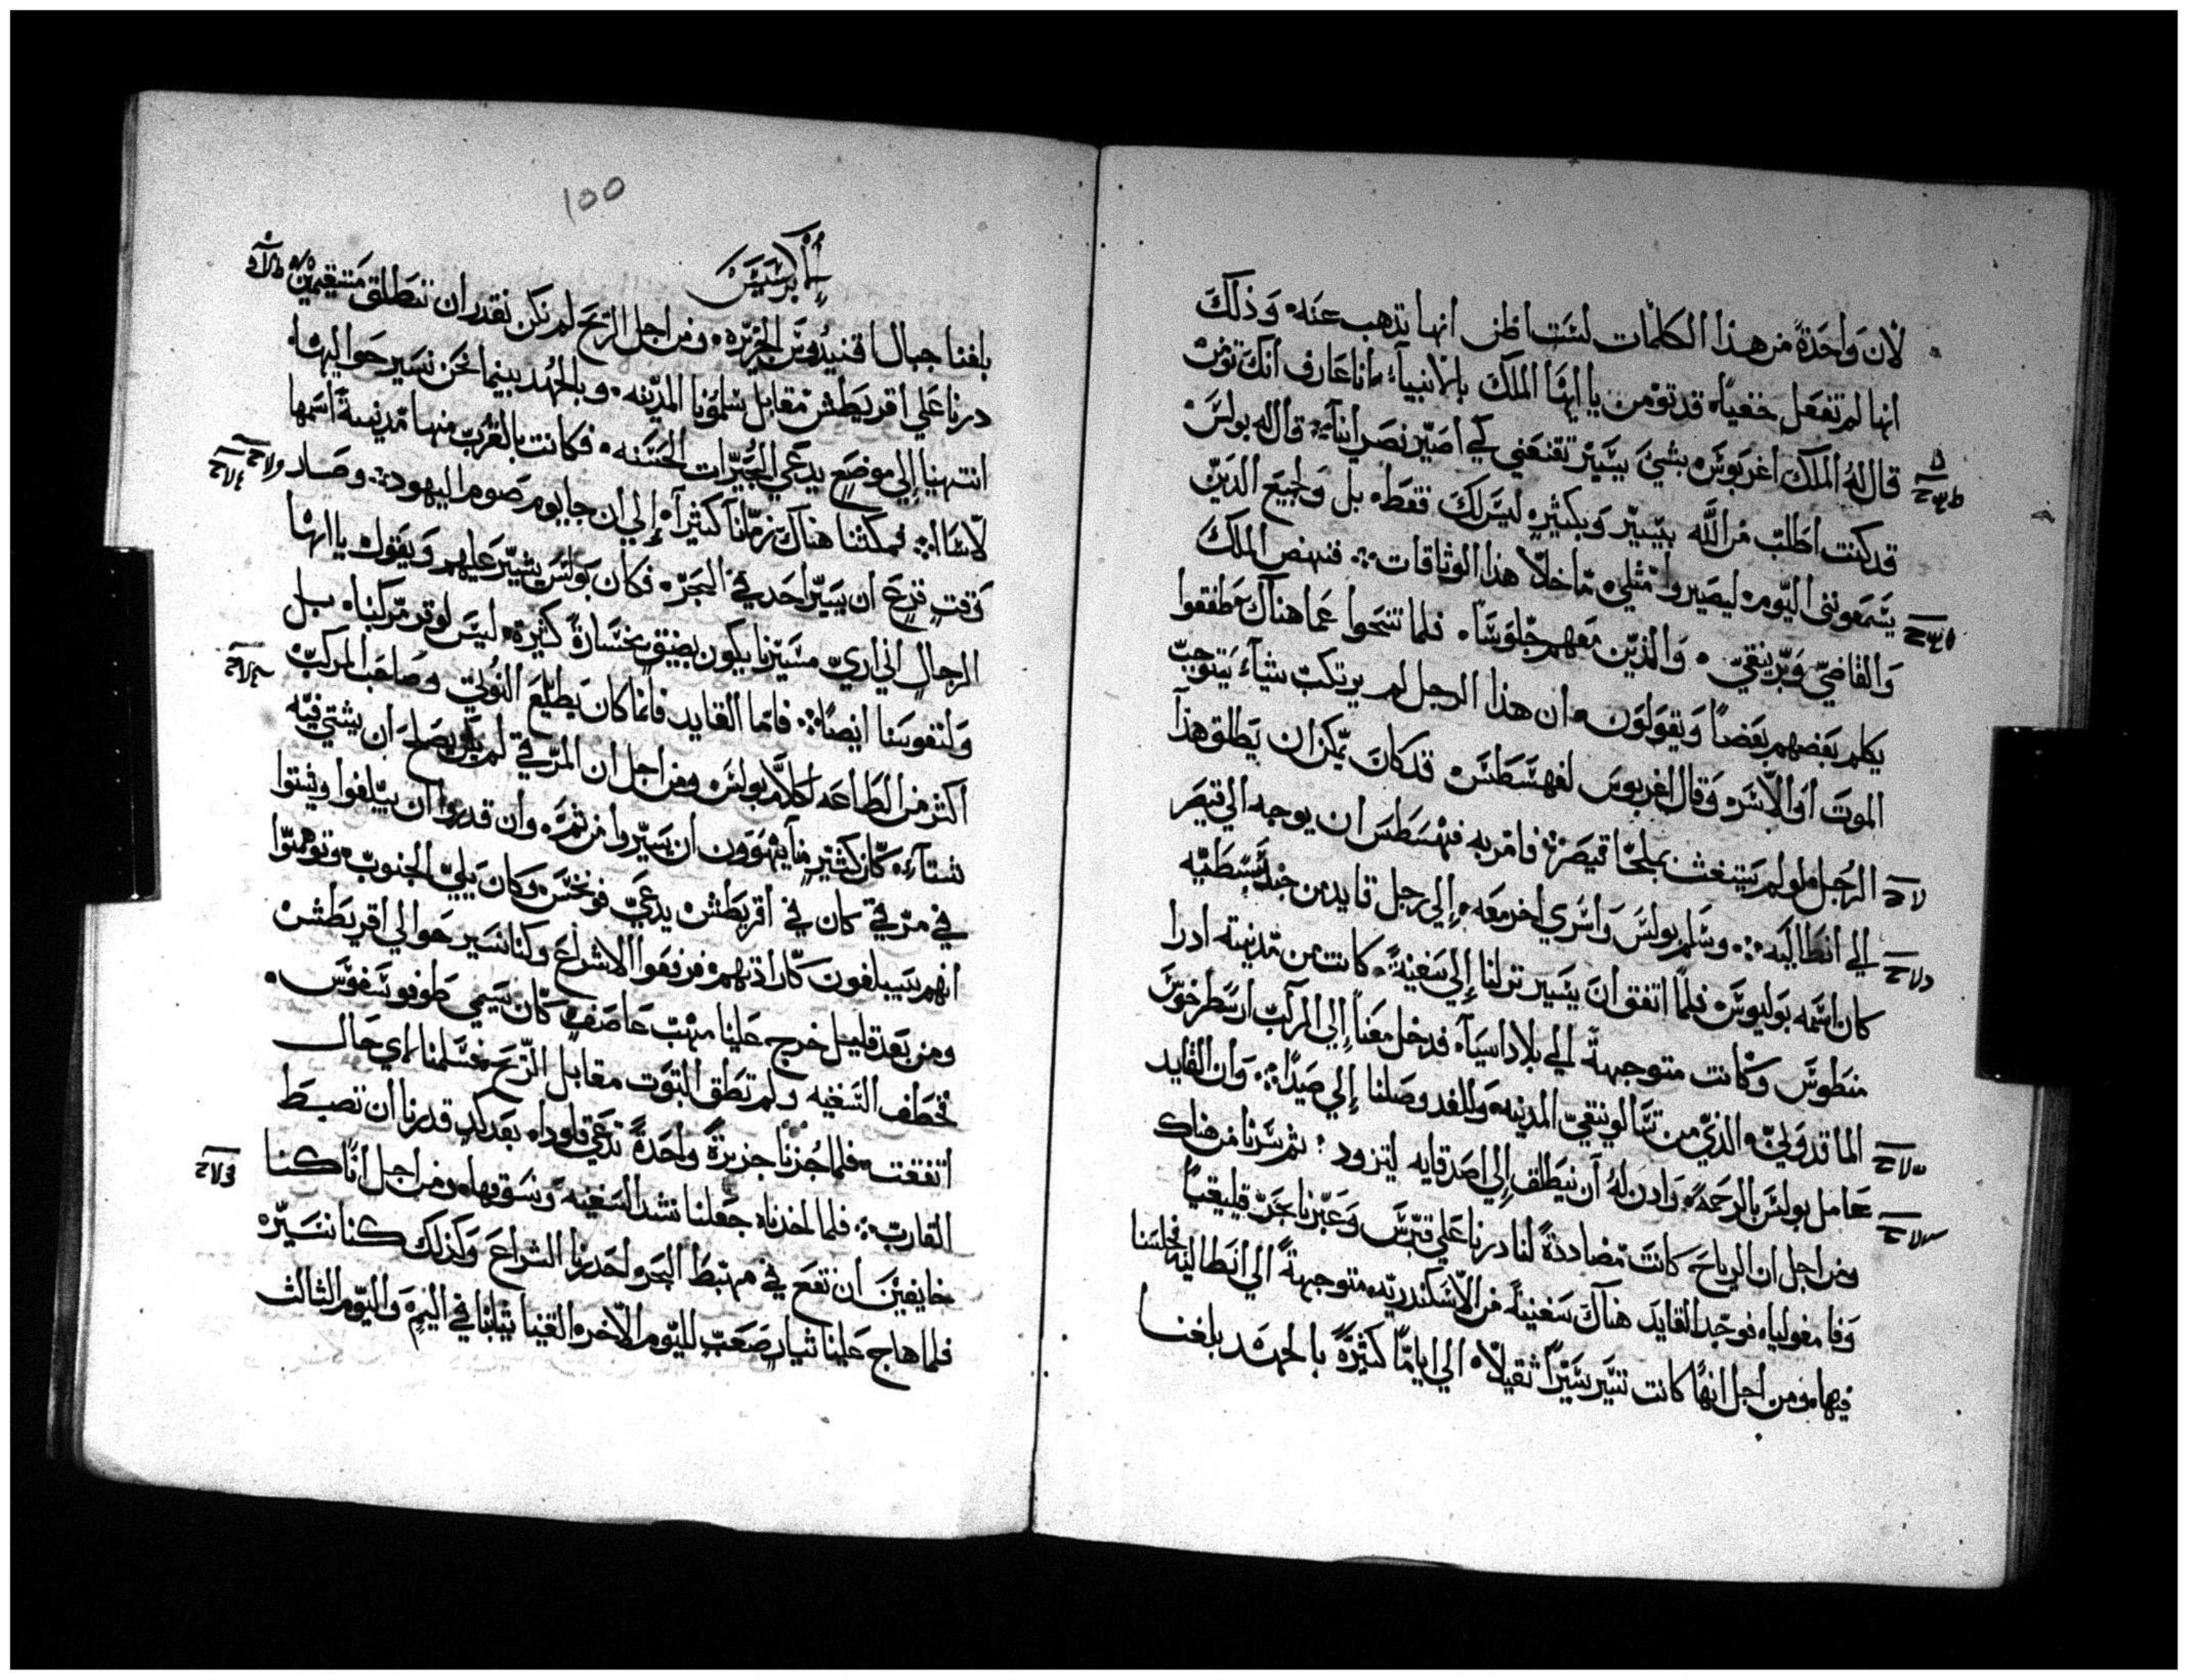 لان واحدة من هذا الكلمات لست اظن انها تذهب عنه وذلك
انها لم تفعل خفيا قد تومن يا ايها الملك بالانبيآ انا عارف انك تومن
قال له الملك اغربوس بشي يسير تقنعني كي اصير نصرانيا قال له بولس
قد كنت اطلب من الله بيسير وبكثير ليس لك فقط بل ولجميع الذين
يسمعوني اليوم ليصيروا مثلي ما خلا هذا الوثاقات فنهض الملك
والقاضي وبرنيقي والذين معهم جلوسا فلما تنحوا عما هناك طفقوا
يكلم بعضهم بعضا ويقولون ان هذا الرجل لم يرتكب شيآ يتوجب
الموت او الاسر وقال اغربوس لفهسطس قد كان يمكن ان يطلق هذا
الرجل لو لم يستغث بملجا قيصر فامر به فهسطس ان يوجه الي قيصر
الي انطاليه وسلم بولس واسري اخر معه الي رجل قايد من جند سبسطيه
كان اسمه يوليوس فلما اتفق ان يسير نزلنا الي سفينة كانت من مدينه ادرا
منطوس وكانت متوجهة الي بلاد اسيآ فدخل معنا الي المركب ارسطرخوس
الماقدوني الذي من تسالونيقي المدينه وللغد وصلنا الي صيدا وان القايد
عامل بولس بالرحمة واذن له ان ينطلق الي اصدقايه ليتزود ثم سرنا من هناك
ومن اجل ان الرياح كانت مضاددة لنا درنا علي قبرس وعبرنا بحر قيليقيا
وفامفوليا فوجد القايد هناك سفينة من الاسكندريه متوجهة الي انطاليه فجلسنا
فيها ومن اجل انها كانت تسير سيرا ثقيلا الي اياما كثيرة بالجهد بلغنا
100
الابركسيس
بلغنا جبال اقنيدوس الجزيره ومن اجل الريح لم نكن نقدر ان ننطلق مستقيمين
درنا علي اقريطش مقابل سلمونا المدينه وبالجهد بينما نحن نسير حواليها
انتهينا الي موضع يدعي الميرات الحسنه فكانت بالقرب منها مدينة اسمها
لاسا فمكثنا هناك زمانا كثيرآ الي ان جا يوم صوم اليهود وصار
وقت فزع ان يسير احد في البحر فكان بولس يشير عليهم ويقول يا ايها
الرجال اني اري مسيرنا يكون بضيق بخسارة كثيرة ليس لوقر مركبنا بل
ولنفوسنا ايضا فاما القايد فانما كان يطيع النوتي وصاحب المركب
اكثر من الطاعه لكلام بولس ومن اجل ان المرفي لم يكن يصلح ان يشتي فيه
شتآء كان كثير منا يهوون ان يسيروا من ثم وان قدروا ان يبلغوا ويشتوا
في مرفي كان في اقريطش يدعي فونخس وكان يلي الجنوب وتوهموا
انهم سيبلغون كارادتهم فرفعوا الاشراع وكنا نسير حوالي اقريطش
ومن بعد قليل خرج علينا مهب عاصف كان يسمي طوفونيقوس
فخطف السفينه ولم تطق الثبوت مقابل الريح فسلمنا لاي حال
اتفقت فلما جزنا جزيرة واحدة تدعي قلودا بعد كد قدرنا ان نضبط
القارب فلما اخذناه جعلنا نشد السفينه ونسوقها ومن اجل انا كنا
خايفين ان نقع في مهبط البحر احدرنا الشراع وكذلك كنا نسير
فلما هاج علينا تيار صعب لليوم الاخر القينا ثيابنا في اليم واليوم الثالث